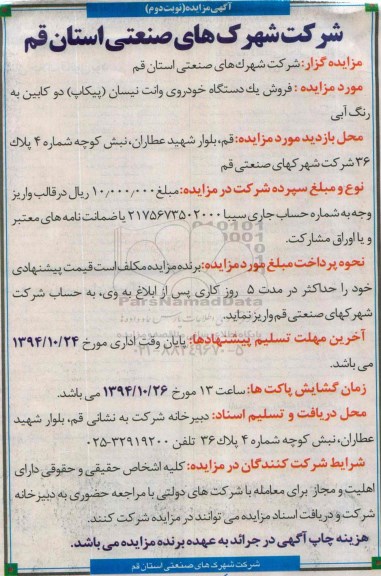 آگهی مزایده (نوبت دوم)
شرکت شهرک های صنعتی استان قم
مزایده گزار: شرکت شهرك‌های صنعتی استان قم
مورد مزایده : فروش یك دستگاه خودروی وانت نیسان (پیکاپ) دو کابین به
رنگ آبی
محل بازدید مورد مزایده: قم، بلوار شهید عطاران، نبش کوچه شماره ۴ پلاك
۳۶ شرکت شهرکهای صنعتی قم
نوع و مبلغ سپرده شرکت در مزایده: مبلغ ۱۰,۰۰۰,۰۰۰ ریال در قالب واریز
وجه به شماره حساب جاری سیبا ۲۱۷۵۶۷۳۵۰۲۰۰۰ یا ضمانت نامه های معتبر
و یا اوراق مشارکت.
نحوه پرداخت مبلغ مورد مزایده: برنده مزایده مکلف است قیمت پیشنهادی
خود را حداکثر در مدت ۵ روز کاری پس از ابلاغ به وی، به حساب شرکت
شهرکهای صنعتی قم واریز نماید.
آخرین مهلت تسلیم پیشنهادها: پایان وقت اداری مورخ ۱۳۹۴/۱۰/۲۴
می باشد.
زمان گشایش پاکت ها: ساعت ۱۳ مورخ ۱۳۹۴/۱۰/۲۶ می باشد.
محل دریافت و تسلیم اسناد: دبیرخانه شرکت به نشانی قم، بلوار شهید
عطاران، نبش کوچه شماره ۴ پلاك ۳۶ تلفن ۳۲۹۱۹۲۰۰-۰۲۵
شرایط شرکت کنندگان در مزایده: کلیه اشخاص حقیقی و حقوقی دارای
اهلیت و مجاز برای معامله با شرکت های دولتی با مراجعه حضوری به دبیرخانه
شرکت و دریافت اسناد مزایده می توانند در مزایده شرکت کنند.
هزینه چاپ آگهی در جرائد به عهده برنده مزایده می باشد.
شرکت شهرک های صنعتی استان قم
ParsNamadData